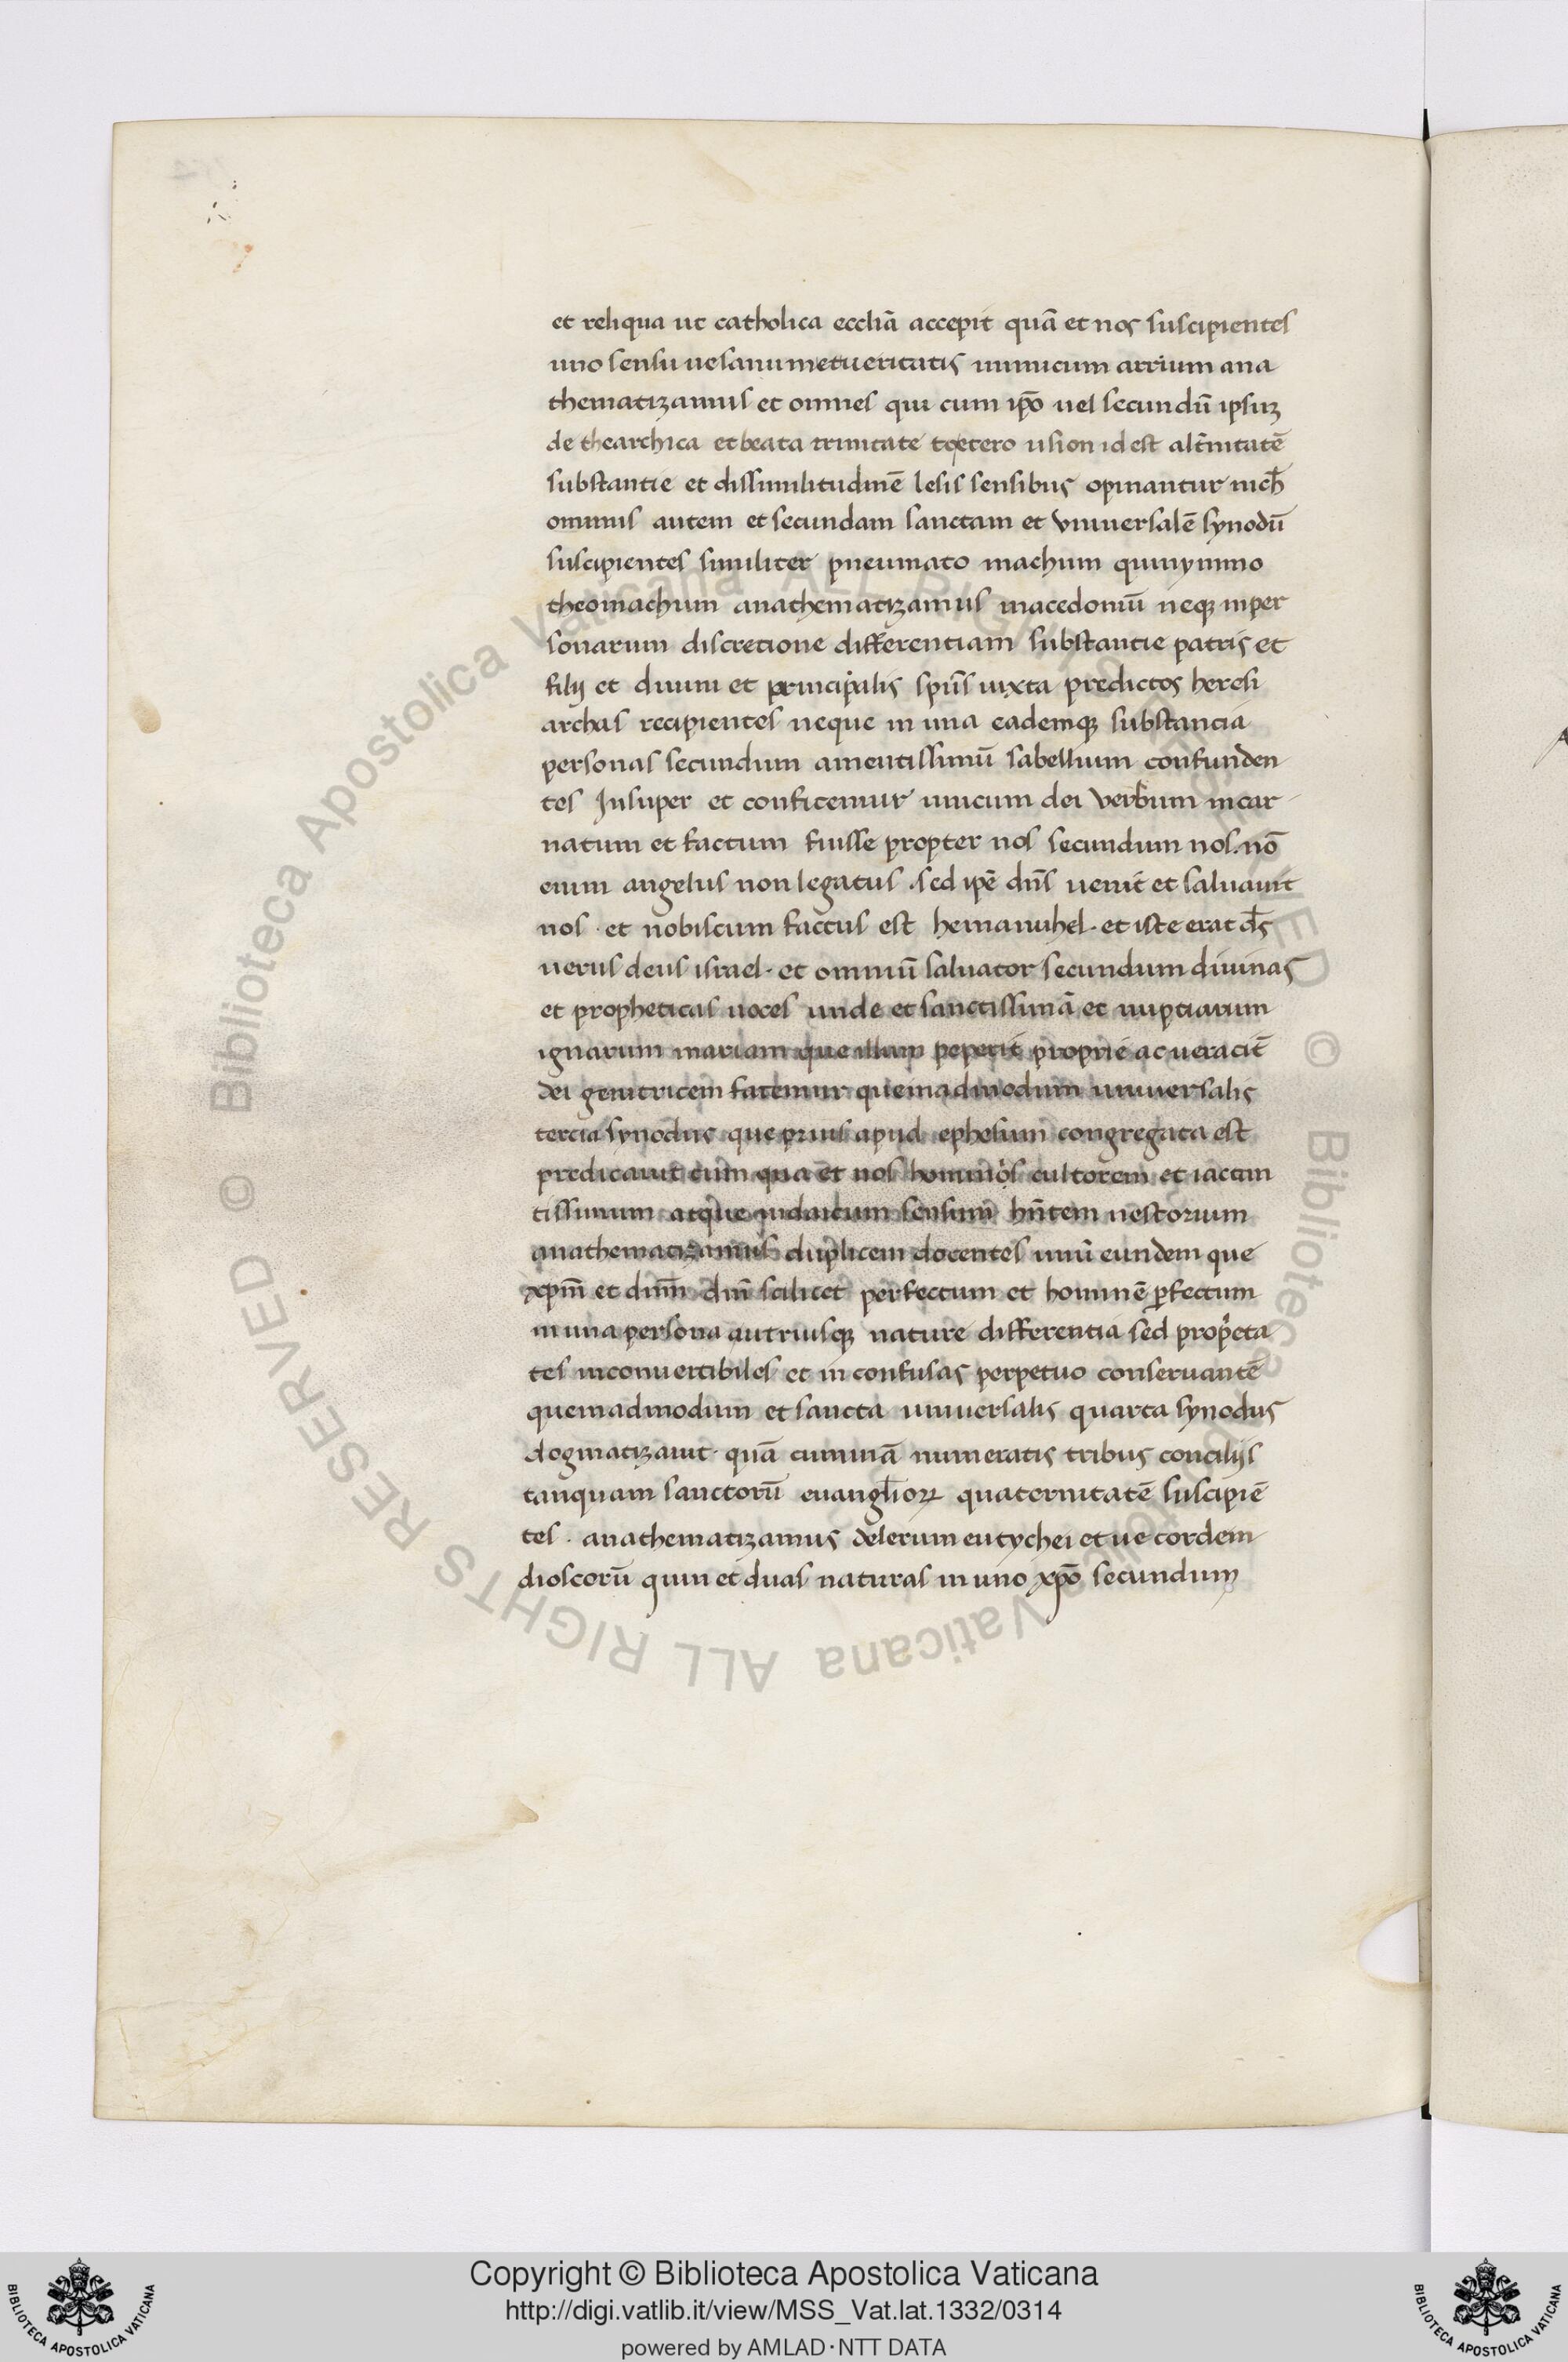 et reliqua ut catholica eccliā accepit quā et nos suscipientes
uno sensu uesanum et ueritatis inimicum arrium ana
thematizamus et omnes qui cum ip̄o uel secundū ipsuʒ
de thearchica et beata trinitate to etero usion id est alt̄nitatē
substantie et dissimilitudinē lesis sensibus opinantur nich̄
ominus autem et secundam sanctam et vniuersalē synodū
suscipientes similiter pneumato machum quinymmo
theomachum anathematizamus macedoniū neqʒ in per
sonarum discretione differentiam substantie patris et
filij et diuini et principalis spūs iuxta predictos heresi
archas recipientes neque in una eademqʒ substancia
personas secundum amentissimū sabellium confunden
tes Insuper et confitemur unicum dei verbum incar
natum et factum fuisse propter nos secundum nos. nō
enim angelus non legatus . sed ipē dn̄s uenit et saluauit
nos . et nobiscum factus est hemanuhel . et iste erat d̄s
uerus deus israel . et omniū saluator secundum diuinas
et propheticas uoces unde et sanctissimā et nuptiarum
ignarum mariam que illum peperit proprie ac ueracit̄
dei genitricem fatemur quemadmodum uniuersalis
tercia synodus que prius apud ephesum congregata est
predicauit cum qua et nos hominis cultorem et iactan
tissimum atque iudaicum sensum hn̄tem nestorium
anathematizamus duplicem docentes unū eundem que
xpm̄ et dnm̄ dm̄ scilicet perfectum et hominē ꝑfectum
in una persona autriusqʒ nature differentia sed propieta
tes inconuertibiles et in confusas perpetuo conseruantē
quemadmodum et sancta uniuersalis quarta synodus
dogmatizauit . quā cum nā numeratis tribus concilijs
tanquam sanctorū euangl̄ioꝝ quaternitatē suscipiē
tes . anathematizamus delerum eutychei et ue cordem
dioscorū quin et duas naturas in uno xp̄o secundum
Copyright © Biblioteca Apostolica Vaticana
http://digi.vatlib.it/view/MSS_Vat.lat.1332/0314
powered by AMLAD·NTT DATA
BIBLIOTECA APOSTOLICA VATICANA
BIBLIOTECA APOSTOLICA VATICANA